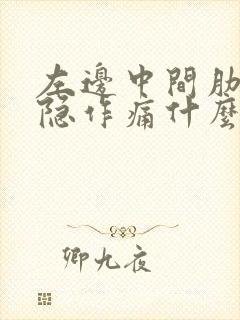 左邊中間肋
隐作痛什麼
卿九夜